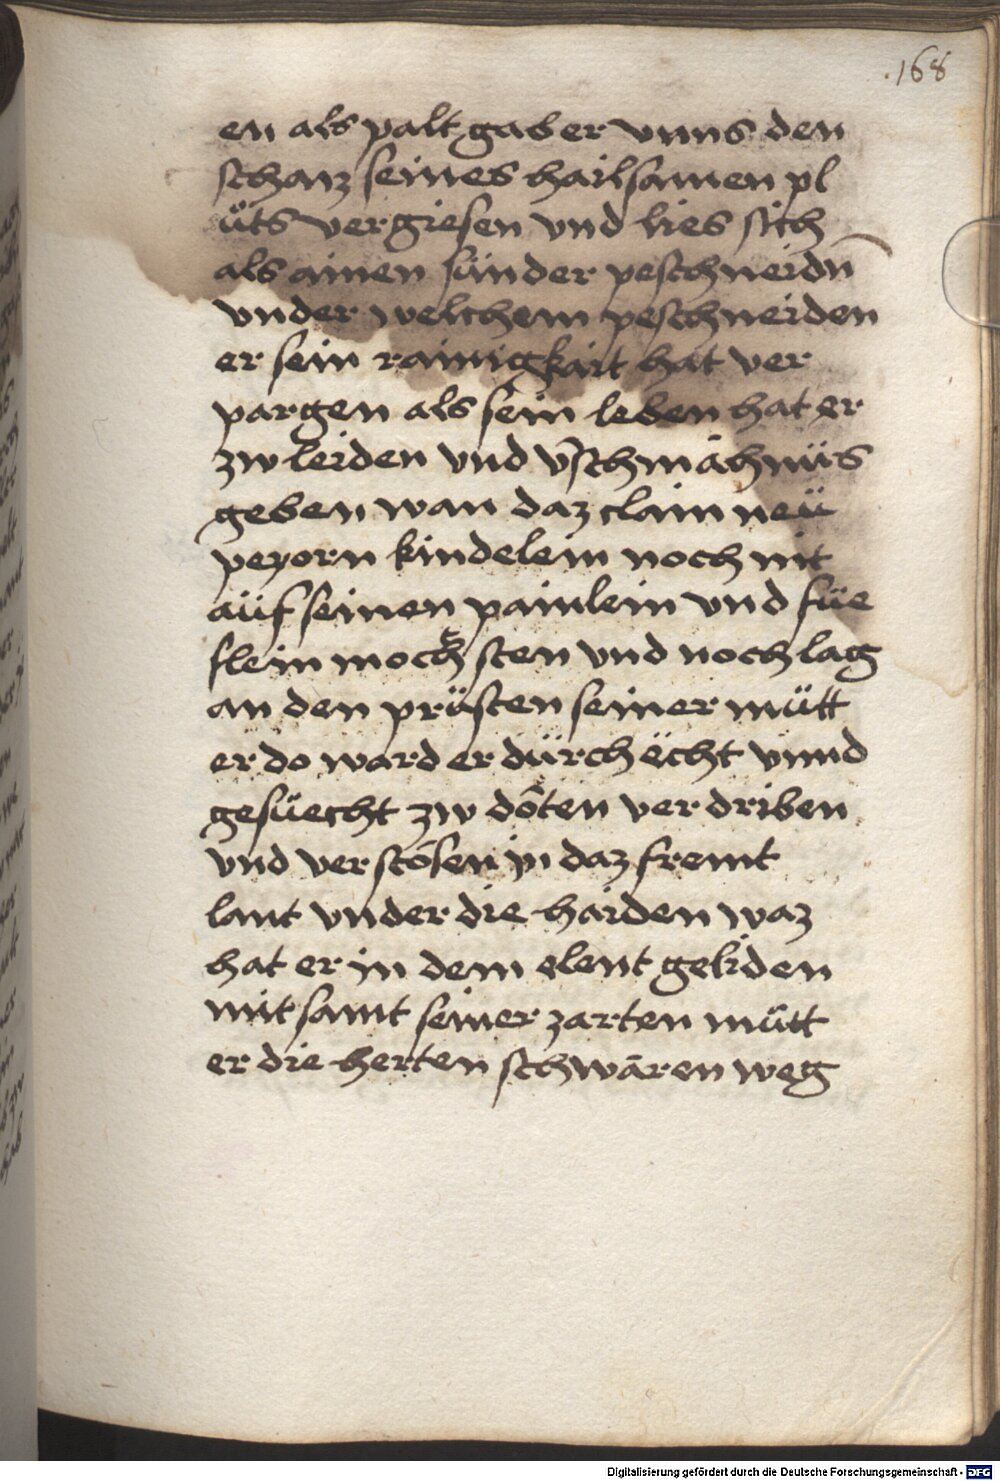 168
en als palt gab er vnns den
schatz seines hailsamen pl
üts vergiesen vnd lies sich
als ainen sünder peschneidn̄
vnder welchem peschneiden
er sein rainigkait hat ver
pargen als sein leben hat er
zw leiden vnd v̄schmähnüs
geben wan daz clain neü
peporn kindelein noch nit
aüf seinen painlein vnd füe
slein mocht sten vnd noch lag
an den prüsten seiner mütt
er do ward er dürch ächt vnnd
gesüecht zw döten ver driben
vnd ver stösen in daz fremt
lant vnder die haiden waz
hat er in dem elent geliden
mit samt seiner zarten mütt
er die herten schwären weg
Digitalisierung gefördert durch die Deutsche Forschungsgemeinschaft - DFG